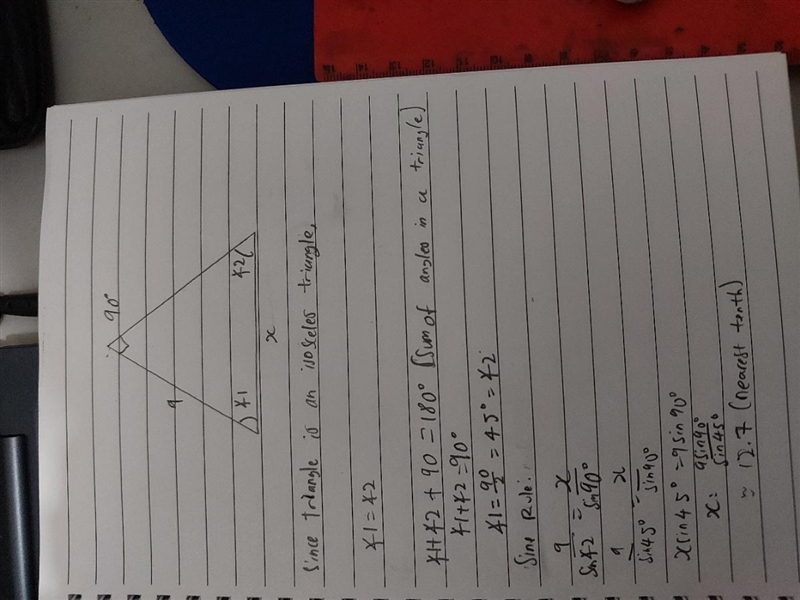 90°
9
∡1
∡2
x
Since triangle is an isosceles triangle,
∡1=∡2
∡1+∡2+90=180° (Sum of angles in a triangle)
∡1+∡2=90°
∡1=90/2=45°=∡2
Sine Rule:
9/sin∡2=x/sin90°
9/sin45°=x/sin90°
xsin45°=9sin90°
x=9sin90°/sin45°
≈12.7 (nearest tenth)